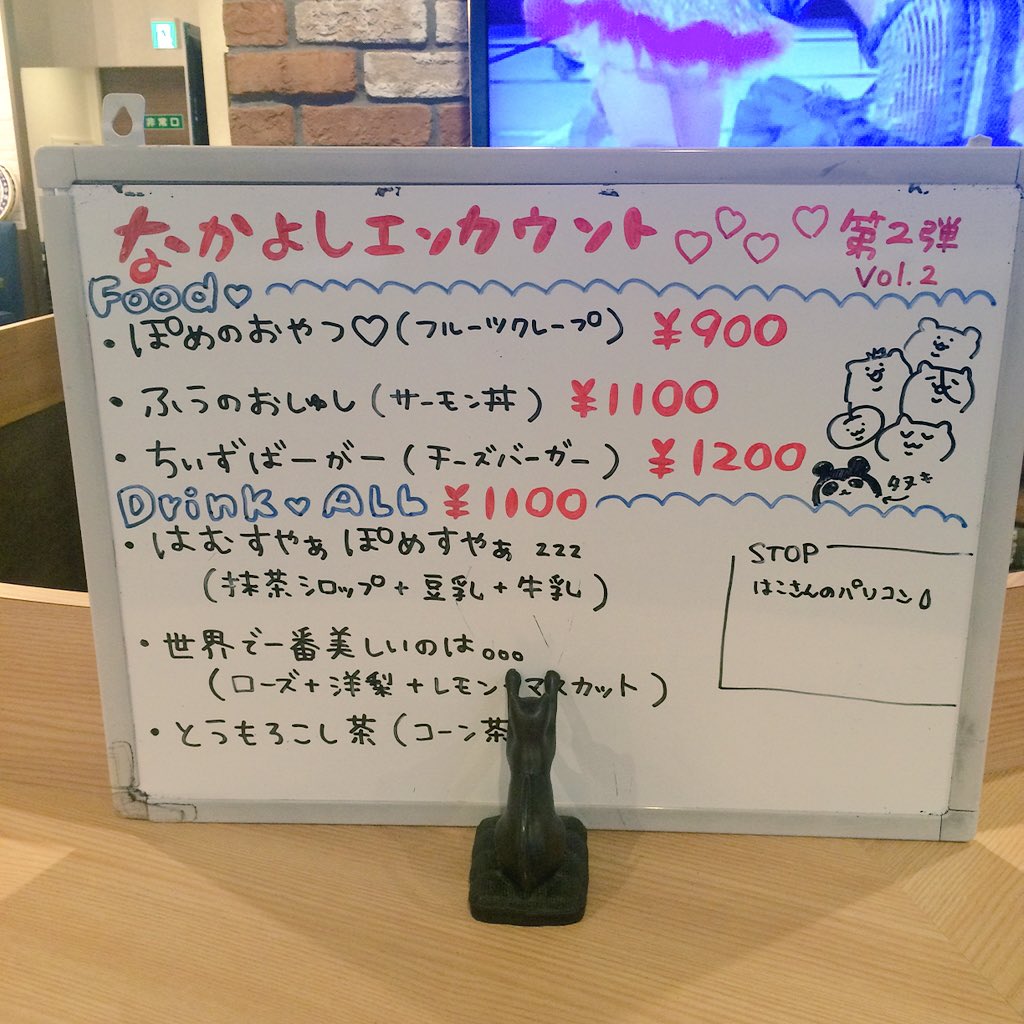 非常口
なかよしエンカウント♡♡♡♡ 第2弾
Vol.2
Food♡
・ぽめのおやつ♡(フルーツクレープ) ¥900
・ふうのおしゅし(サーモン丼) ¥1100
・ちぃずばーがー(チーズバーガー) ¥1200
タヌキ
Drink♡ALL ¥1100
・はむすやぁ ぽめすやぁ zzz
(抹茶シロップ+豆乳+牛乳)
STOP
はこさんのパソコン
・世界で一番美しいのは。。。
(ローズ+洋梨+レモン+マスカット)
・とうもろこし茶(コーン茶